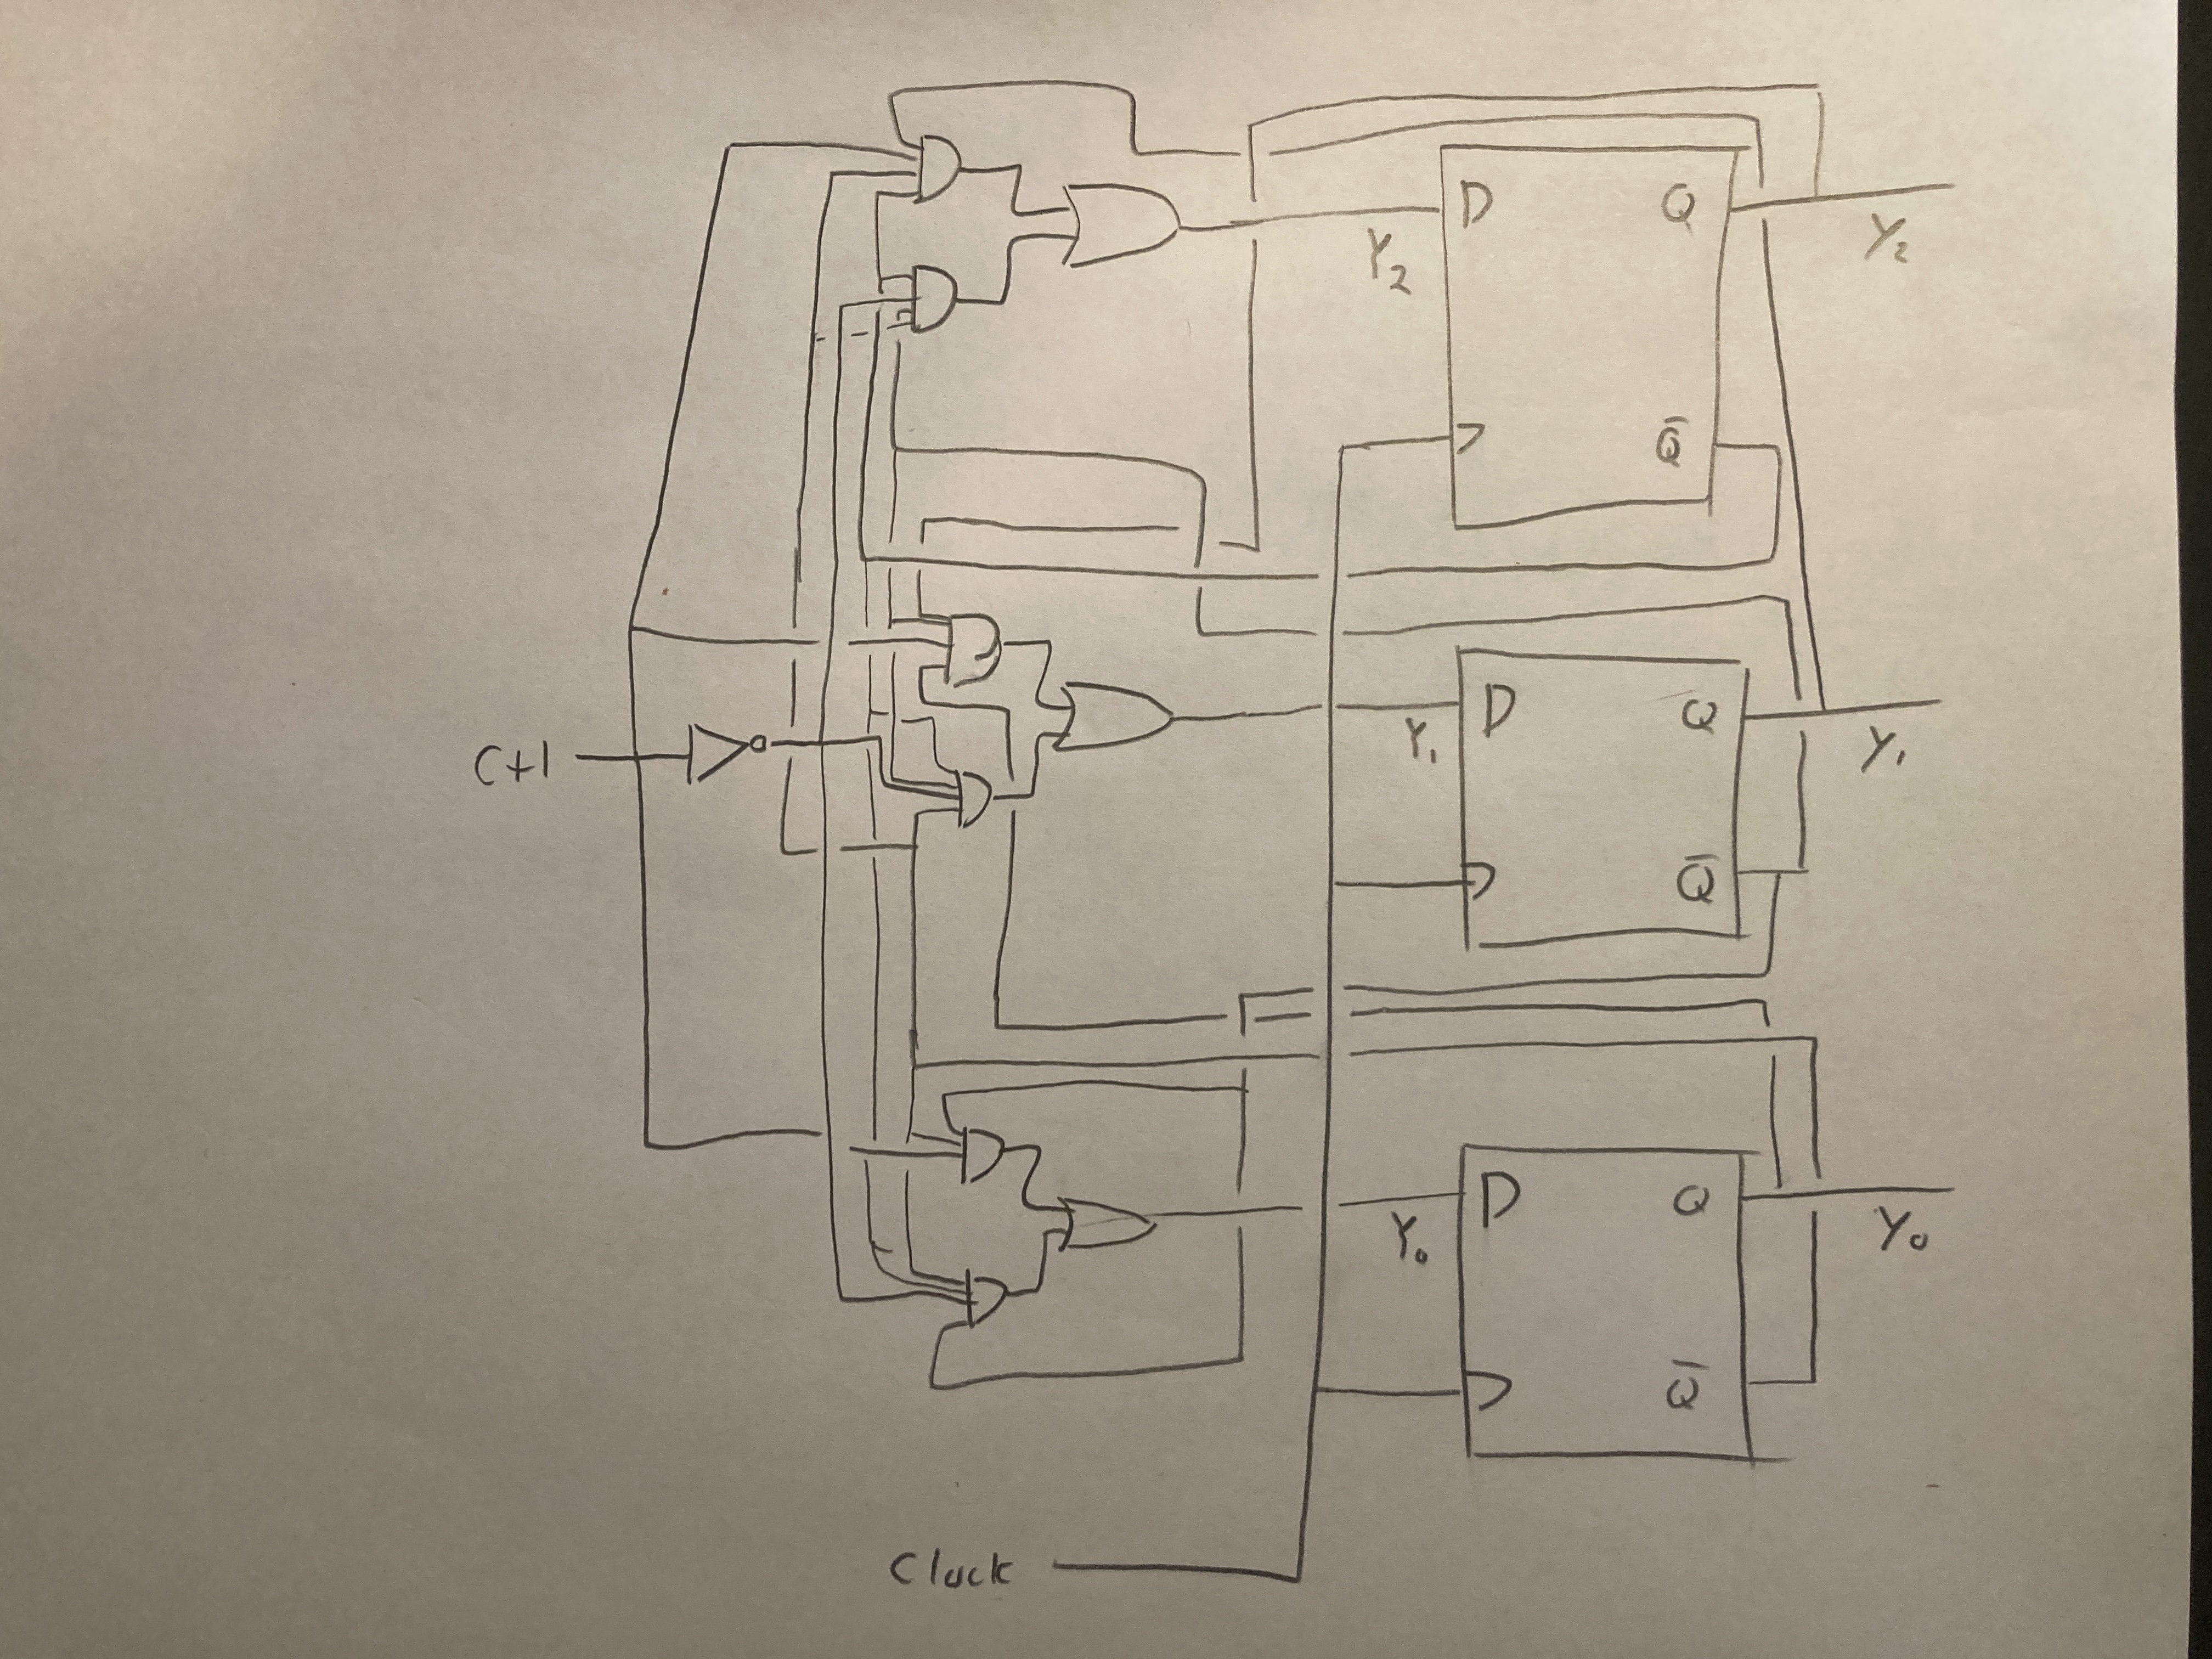 D Q
Y₂ y₂
Q̅
D Q
C+1 Y₁ y₁
Q̅
D Q
Y₀ y₀
Q̅
Clock